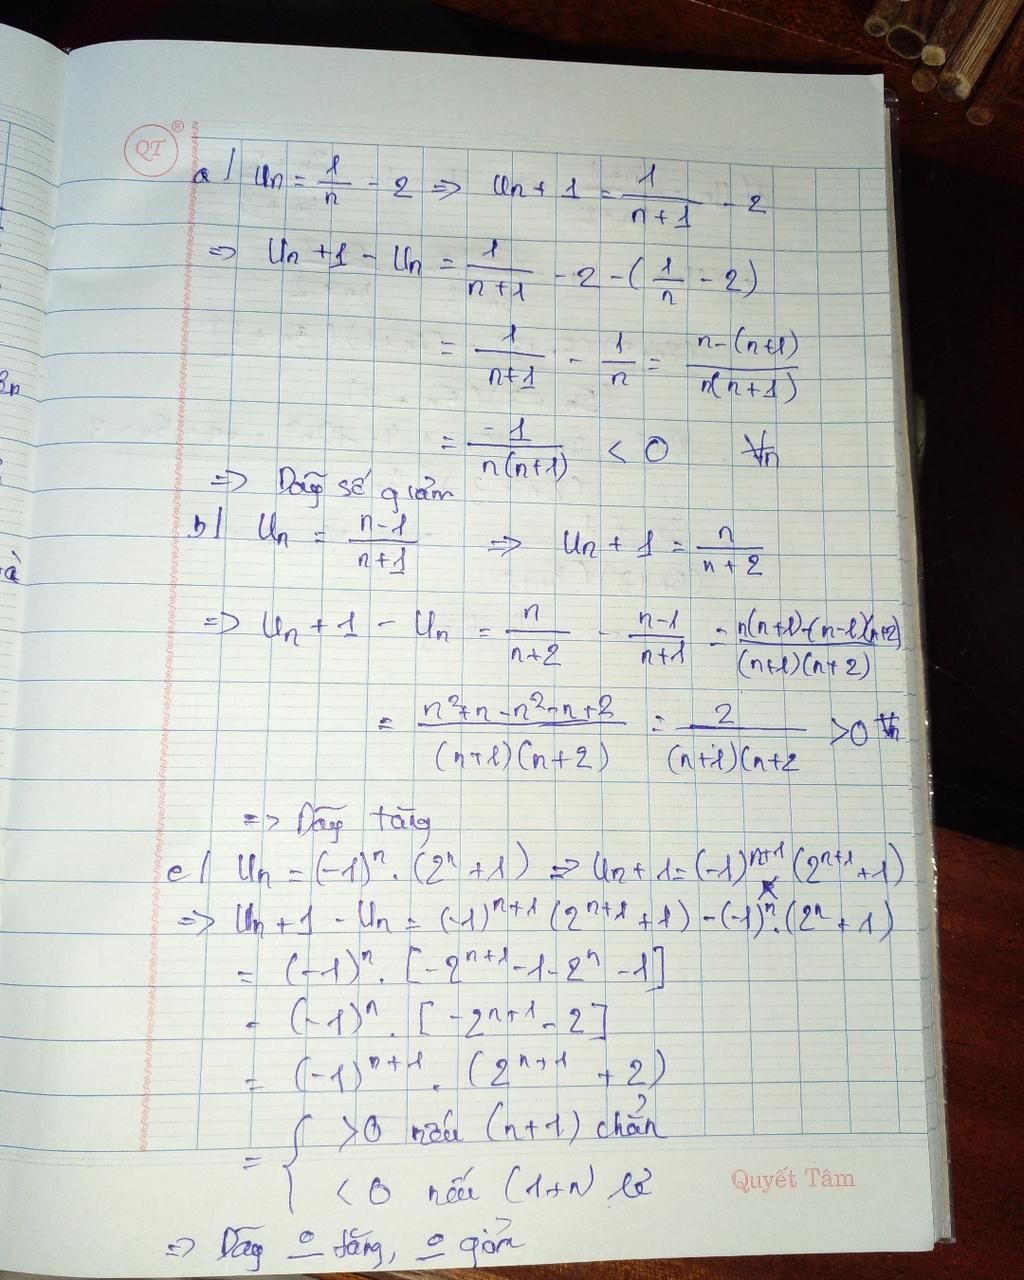 QT ®
a/ Un = 1/n - 2 => Un + 1 = 1/(n+1) - 2
=> Un + 1 - Un = 1/(n+1) - 2 - (1/n - 2)
= 1/(n+1) - 1/n = (n-(n+1))/(n(n+1))
= -1/(n(n+1)) < 0 ∀n
=> Dãy số giảm
b/ Un = (n-1)/(n+1) => Un + 1 = n/(n+2)
=> Un + 1 - Un = n/(n+2) - (n-1)/(n+1) = (n(n+1)-(n-1)(n+2))/((n+1)(n+2))
= (n²+n-n²-n+2)/((n+1)(n+2)) = 2/((n+1)(n+2) > 0 ∀n
=> Dãy tăng
c/ Un = (-1)ⁿ . (2ⁿ + 1) => Un + 1 = (-1)ⁿ⁺¹ (2ⁿ⁺¹ + 1)
=> Un + 1 - Un = (-1)ⁿ⁺¹ (2ⁿ⁺¹ + 1) - (-1)ⁿ . (2ⁿ + 1)
= (-1)ⁿ . [-2ⁿ⁺¹ - 1 - 2ⁿ - 1]
= (-1)ⁿ . [-2ⁿ⁺¹ - 2]
= (-1)ⁿ⁺¹ . (2ⁿ⁺¹ + 2)
= { > 0 nếu (n+1) chẵn
< 0 nếu (1+n) lẻ
Quyết Tâm
=> Dãy o tăng, o giảm